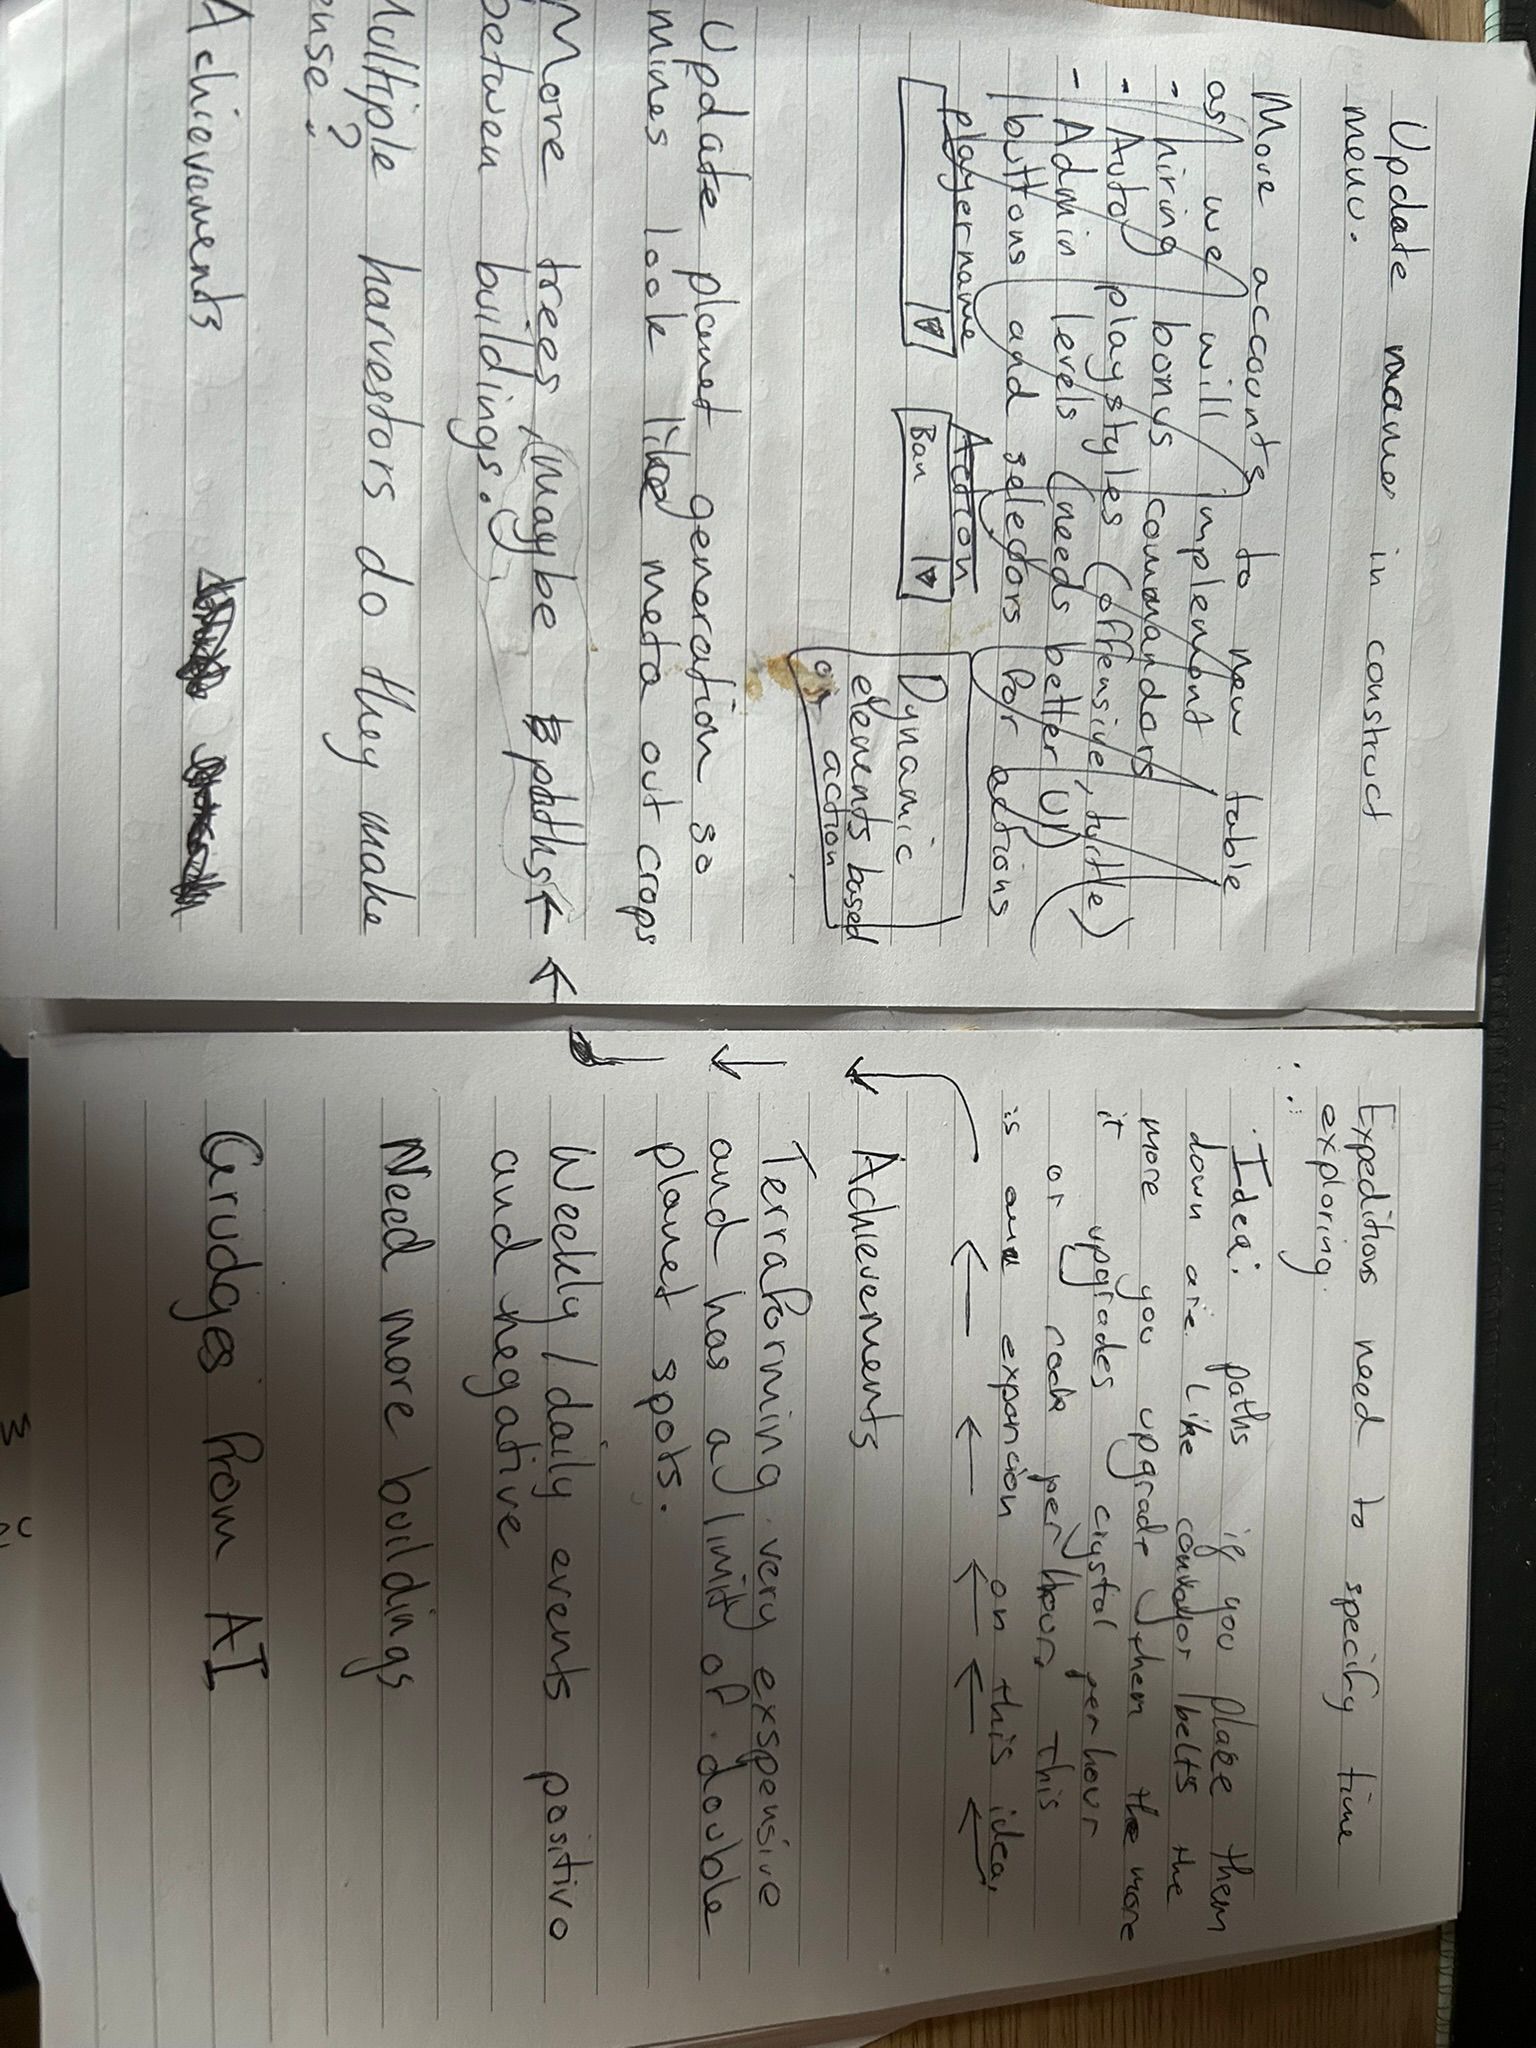 Update in construct
menu.
Move accounts to new table
as we will implement
- hiring bonus commanders
- Auto playstyles (offensive, turtle)
- Admin levels (needs better UI)
buttons and selectors for actions
playername Action
Ban
Dynamic
elements based
on action
Update planet generation so
mines look like meta out crops
More trees, maybe paths
between buildings.
Multiple harvestors do they make
ense?
Achievements
Expeditions need to specify time
exploring.
Idea: paths if you place them
down are like convayor belts the
more you upgrade them the more
it upgrades crystal per hour
or rock per hour, this
is an expancion on this idea,
Achievements
Terraforming very exspensive
and has a limit of double
planet spots.
Weekly / daily events positive
and negative
Need more buildings
Grudges from AI